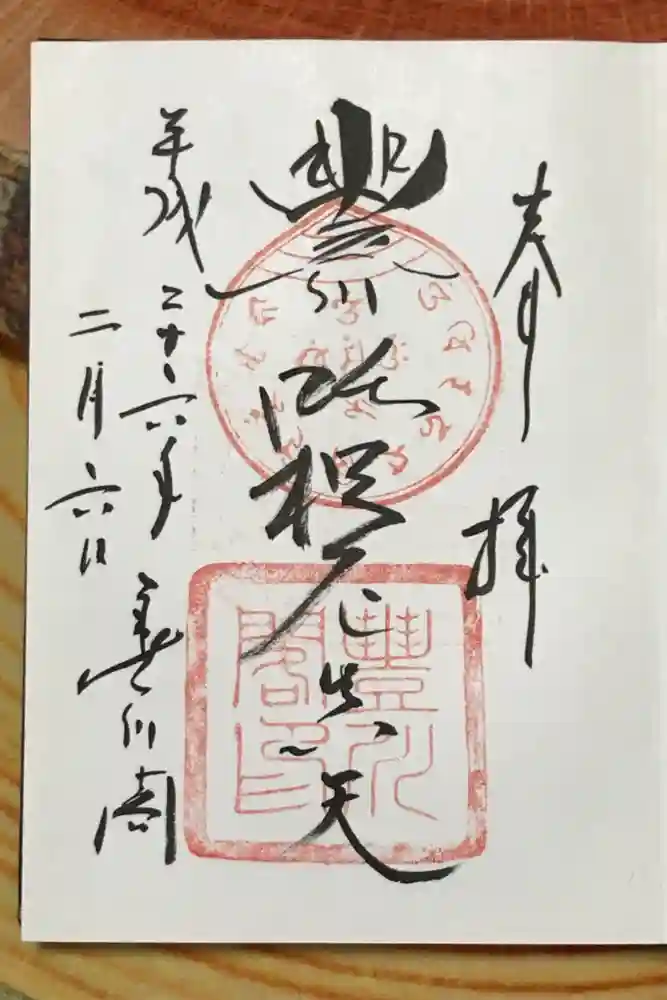 奉拝
豐川吒枳尼眞天
平成二十六年
二月六日
豊川閣
豐川閣印